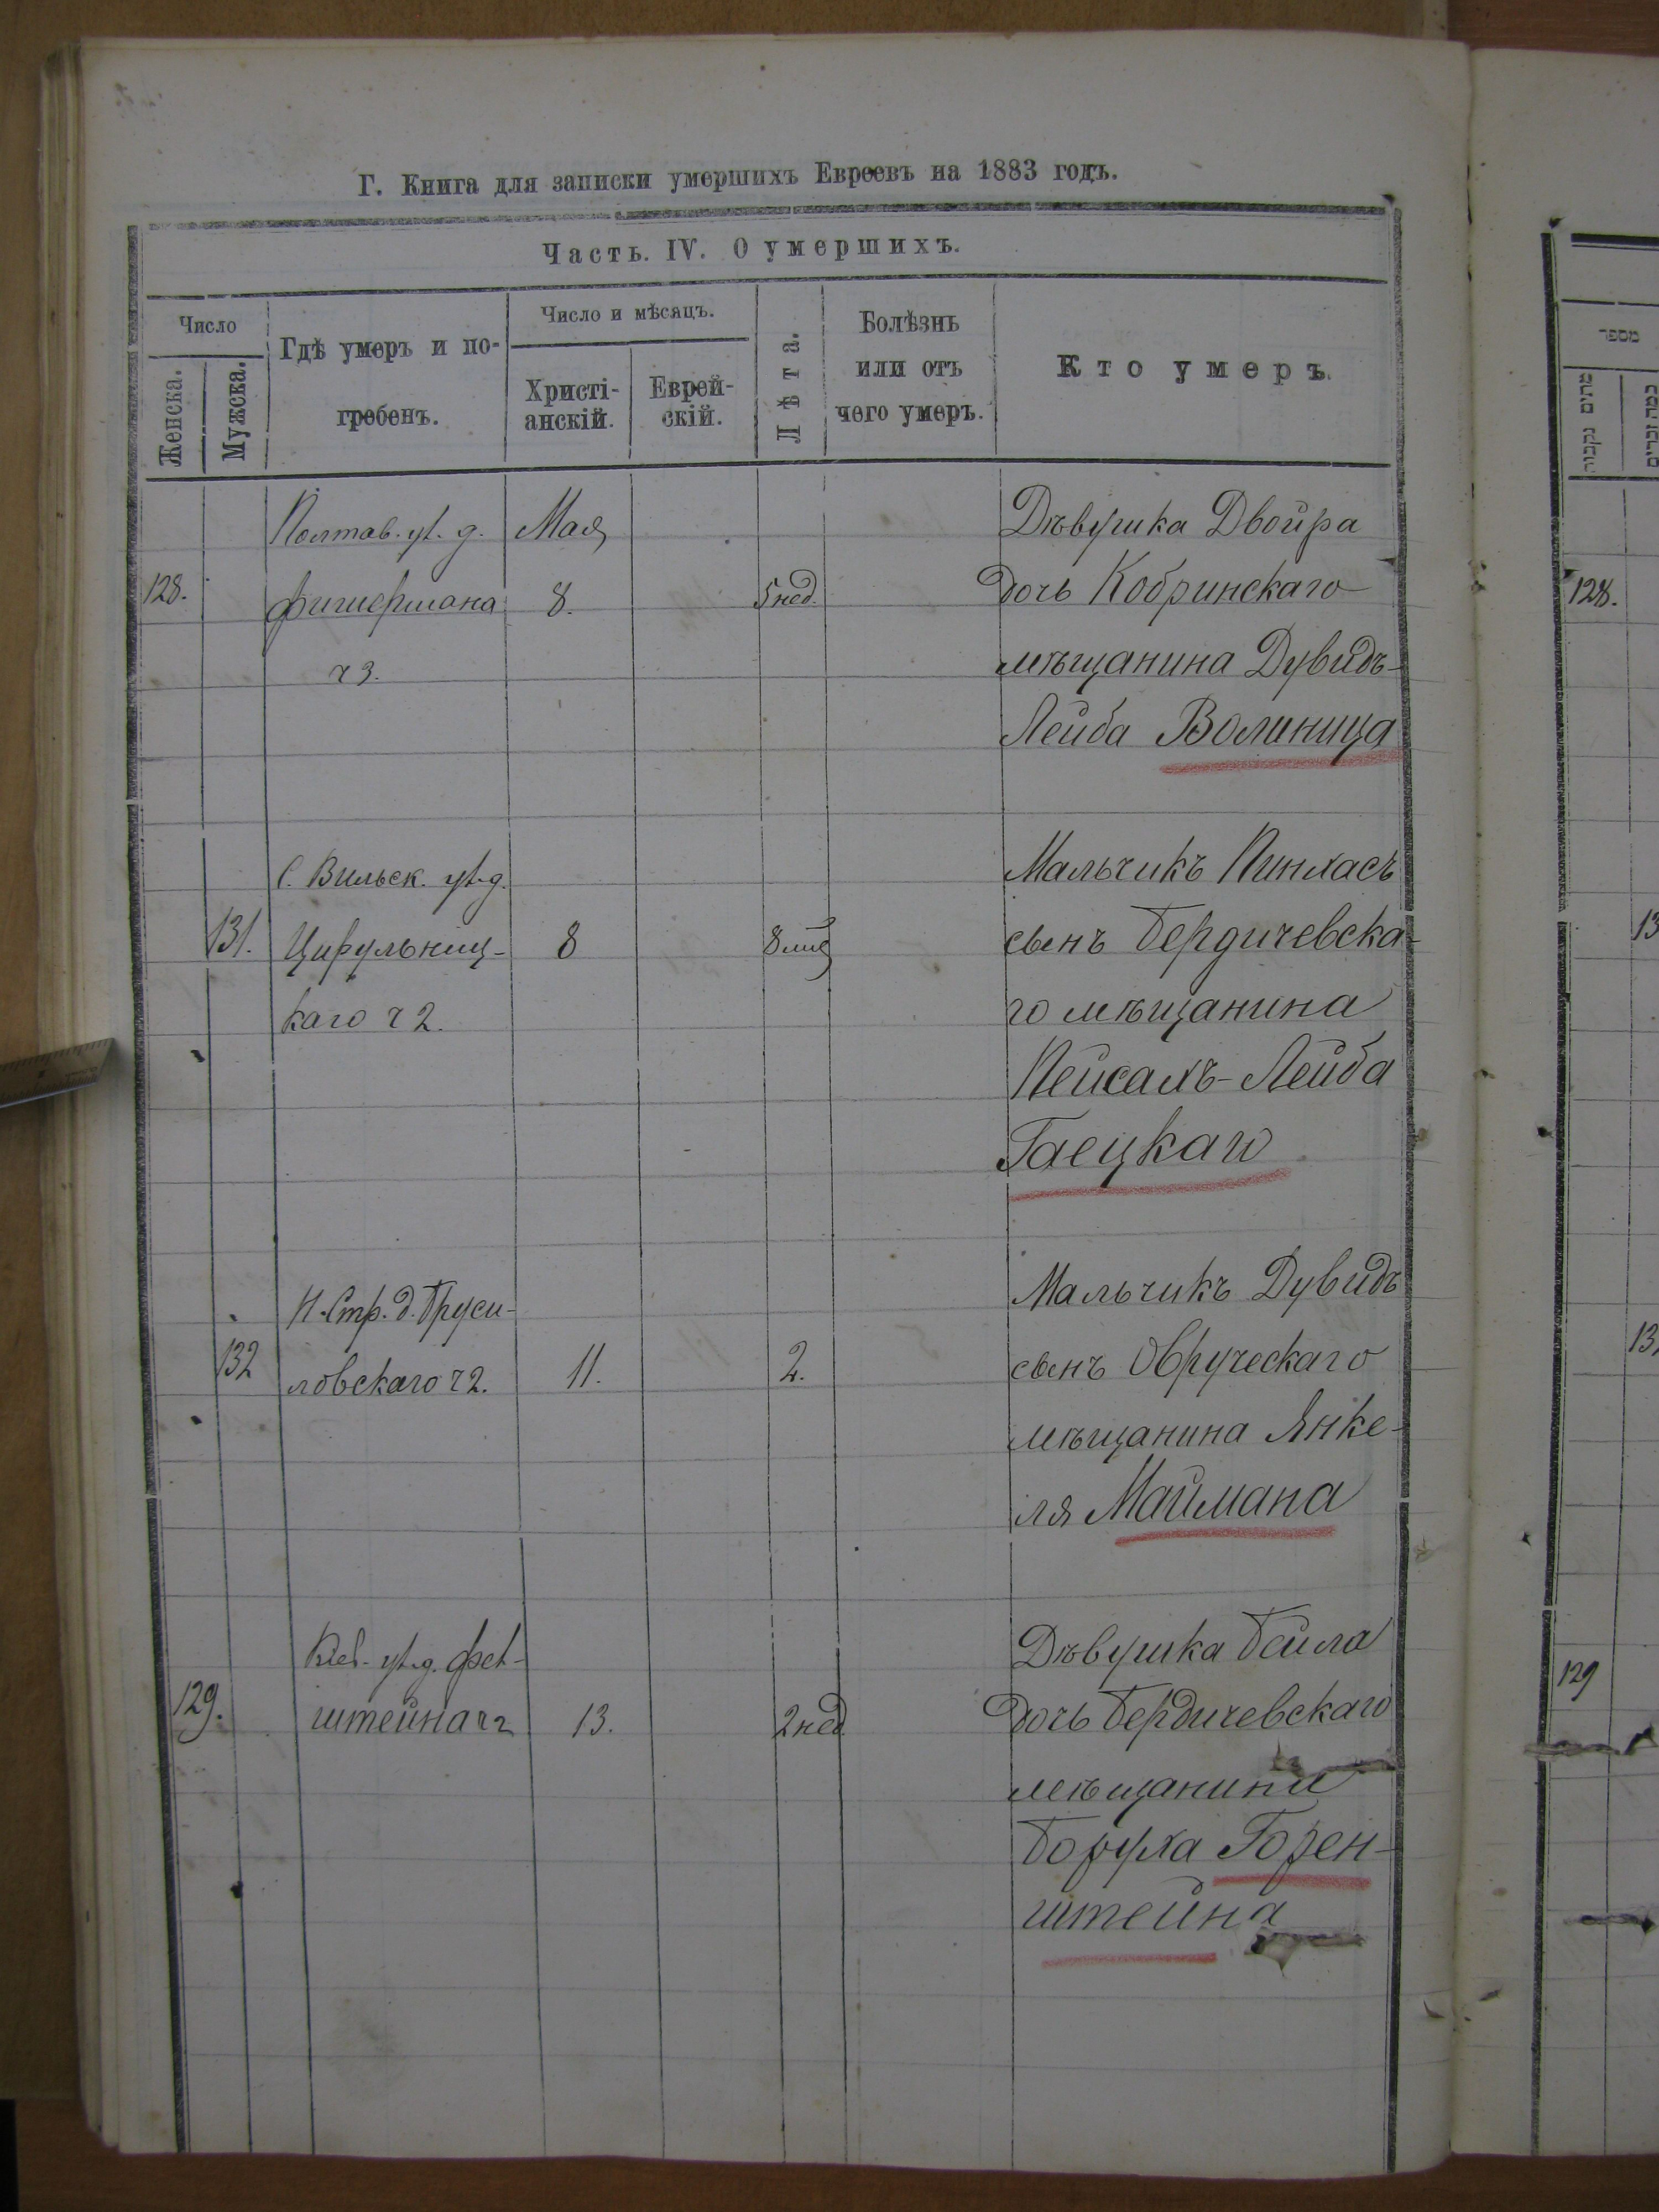 Г. Книга для записки умершихъ Евреевъ на 1883 годъ.
Часть. IV. О умершихъ.
Число
Женска.
Мужска.
Гдѣ умеръ и по-
гребенъ.
Число и мѣсяцъ.
Христі-
анскій.
Еврей-
скій.
Лѣта.
Болѣзнь
или отъ
чего умеръ.
Кто умеръ.
Полтав. ул. д. Мая Дѣвушка Двойра
128. Фишермана 8. 5 нед. дочь Кобринскаго
ч 3. мѣщанина Дувидъ-
Лейба Волиница
С. Вильск. ул. д. Мальчикъ Пинхасъ
131. Цирульниц- 8 сынъ Бердичевска-
каго ч 2. го мѣщанина
Пейсахъ-Лейба
Гаецкаго
Н. Стр. д. Бруси- Мальчикъ Дувидъ
132 ловскаго ч 2. 11. 2. сынъ Овручскаго
мѣщанина Янке-
ля Маймана
Кіев. ул. д. Дѣвушка Бейла
129. штейна ч 2 13. 2 нед. дочь Бердичевскаго
мѣщанина
Боруха Горен-
штейна
מספר
128.
129